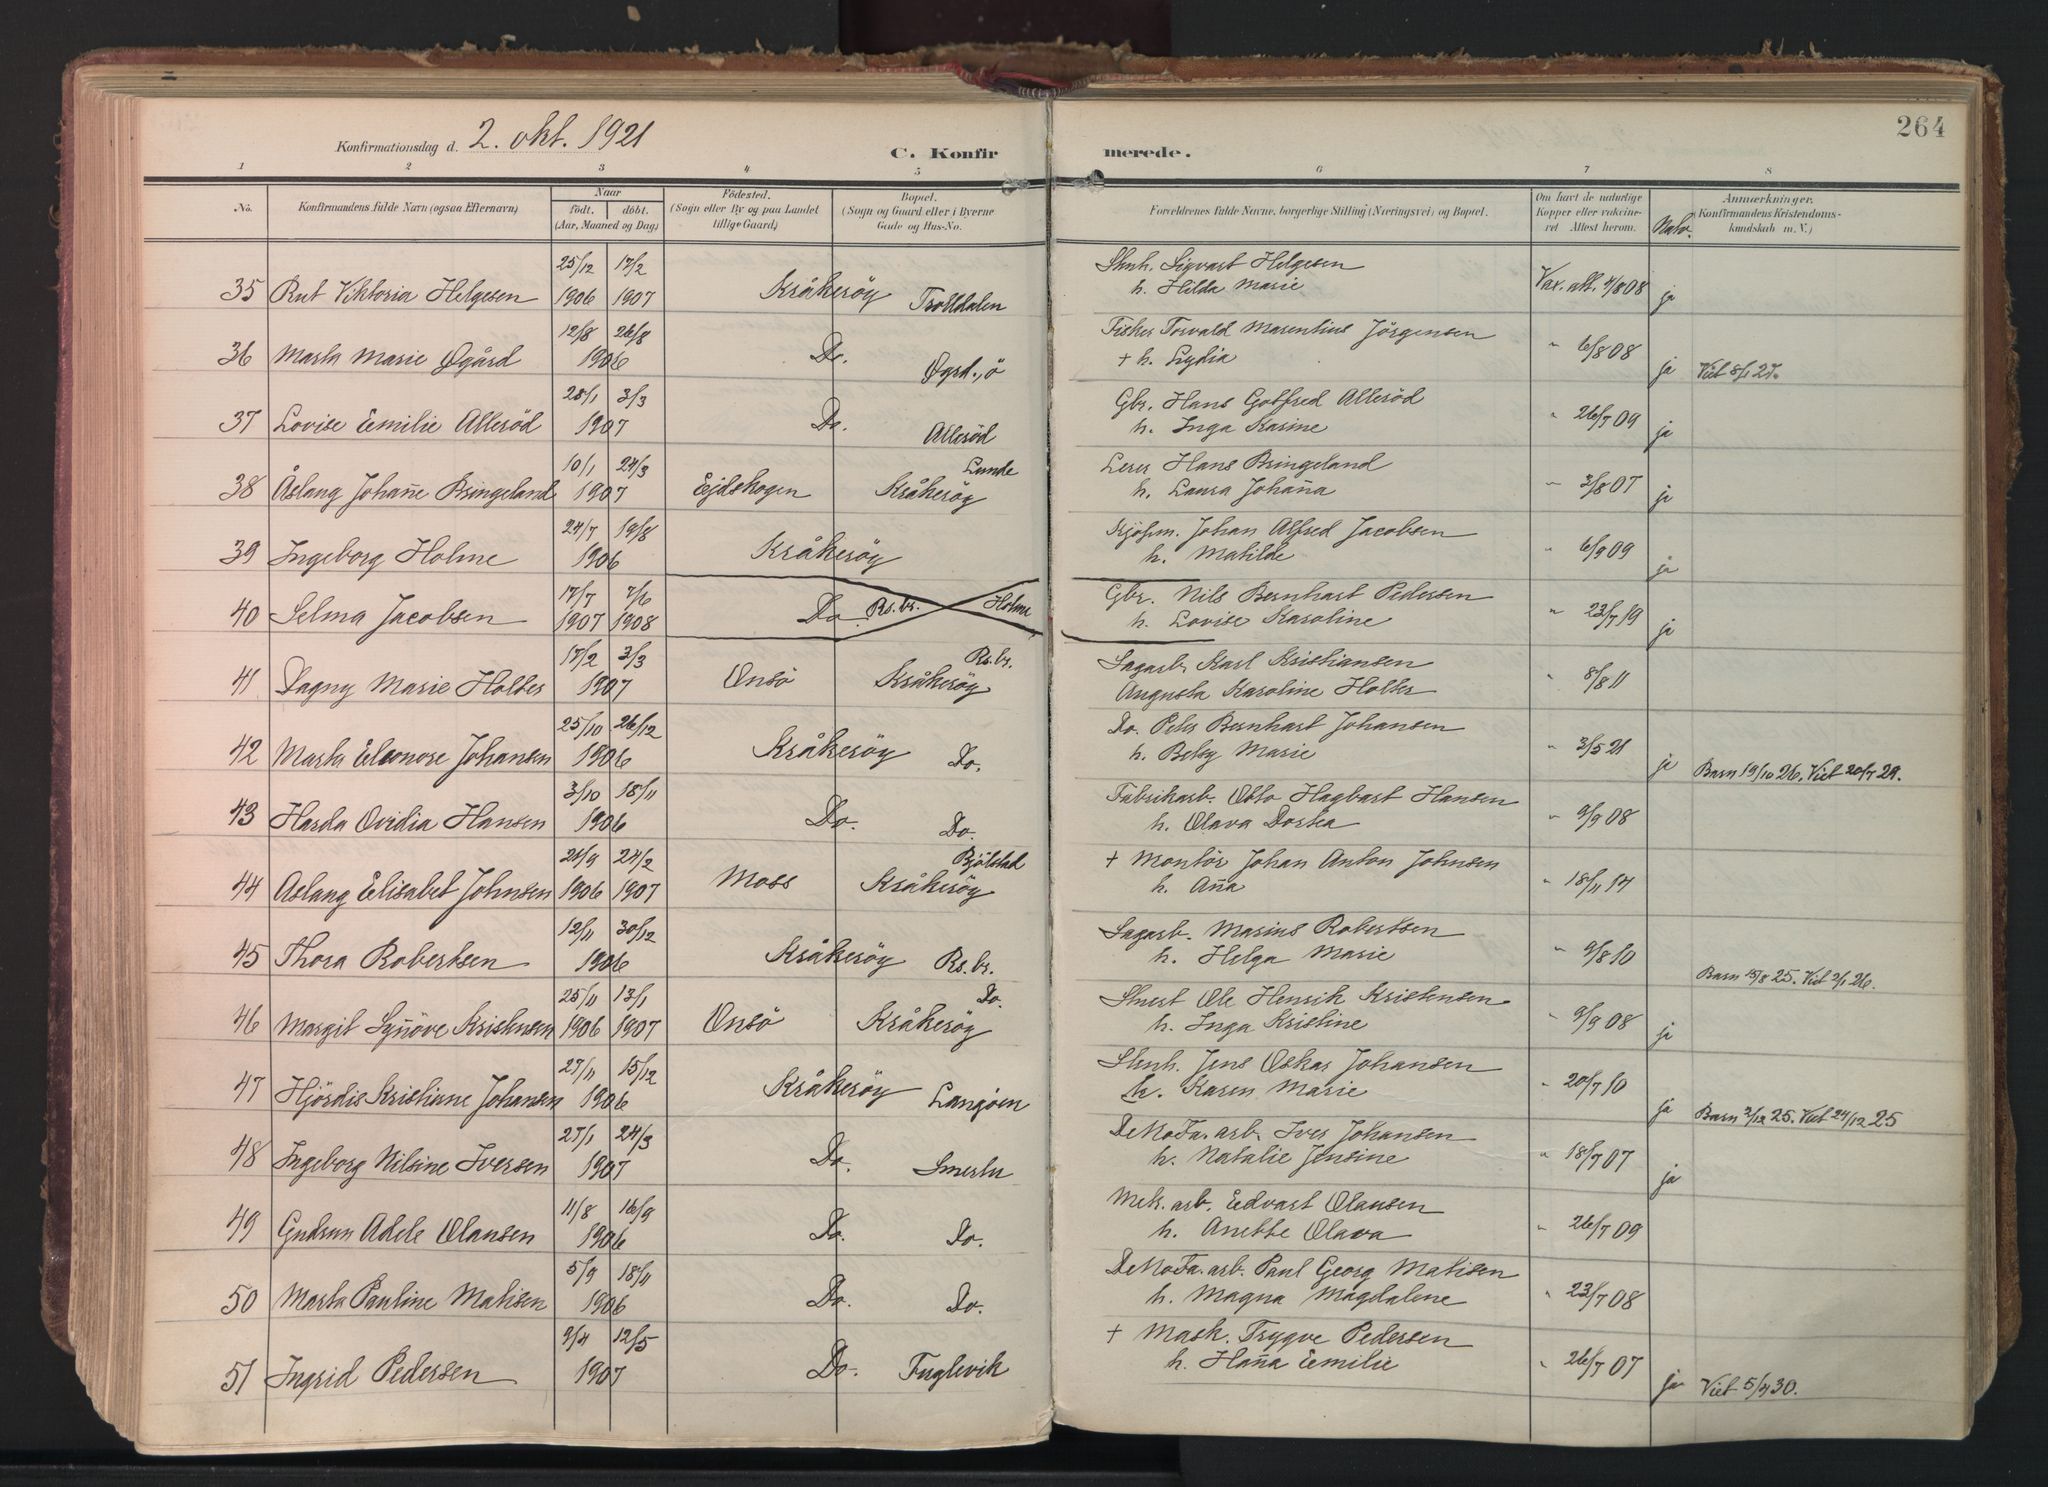 264
Konfirmationsdag d. 2. okt. 1921
C. Konfir merede.
1 2 3 4 5 6 7 8
No. Konfirmandens fulde Navn (ogsaa Efternavn) Naar födt. döbt. (Aar, Maaned og Dag) Födested. (Sogn eller By og paa Landet tillige Gaard) Bopæl. (Sogn og Gaard eller i Byerne Gade og Hus-No. Forældrenes fulde Navne, borgerlige Stilling (Næringsvei) og Bopæl. Om havt de naturlige Kopper eller vakcineret Attest herom. Natv. Anmærkninger. Konfirmandens Kristendomskundskab m. V.)
25/12 17/2 Skuh. Sigvart Helgesen
35 Rut Viktoria Helgesen 1906 1907 Kråkeröy Trolldalen h. Hilda Marie Vax. att. 7/8 08 ja
12/8 26/8 Fisker Torvald Marentius Jörgensen
36 Marta Marie Øgård 1906 Do. Øgrd., ö + h. Lydia " 6/8 08 ja Viet 8/1 27.
28/1 3/3 Gbr. Hans Gotfred Alleröd
37 Lovise Emilie Alleröd 1907 Do. Alleröd h. Inga Karine " 26/7 09 ja
10/1 24/3 Lunde Lerer Hans Bringeland
38 Åslaug Johañe Bringeland 1907 Ejdskogen Kråkeröy h. Laura Johaña " 3/8 07 ja
24/7 19/8 Kjöpm. Johan Alfred Jacobsen
39 Ingeborg Holme 1906 Kråkeröy h. Matilde " 6/9 09 ja
17/7 7/6 Rs. br. Holme Gbr. Nils Bernhart Pedersen
40 Selma Jacobsen 1907 1908 Do. h. Lovise Karoline " 23/7 19 ja
17/2 3/3 Rs. br. Sagarb. Karl Kristiansen
41 Dagny Marie Holter 1907 Onsö Kråkeröy Augusta Karoline Holter " 8/8 11
25/10 26/12 Do. Peter Bernhart Johansen
42 Marta Eleonore Johansen 1906 Kråkeröy Do. h. Betsy Marie " 3/5 21 ja Barn 19/10 26. Viet 20/7 29.
3/10 18/11 Fabrikarb. Otto Hagbart Hansen
43 Harda Ovidia Hansen 1906 Do. Do. h. Olava Dortea " 9/9 08
26/9 24/2 Bjölstad + Montör Johan Anton Johnsen
44 Aslaug Elisabet Johnsen 1906 1907 Moss Kråkeröy h. Aña " 18/11 14
12/11 30/12 Sagarb. Marius Robertsen
45 Thora Robertsen 1906 Kråkeröy Rs. br. h. Helga Marie " 9/8 10 Barn 15/8 25. Viet 2/1 26.
25/11 13/1 Do. Ole Henrik Kristensen
46 Margit Syñöve Kristensen 1906 1907 Onsö Kråkeröy h. Inga Kristine " 9/9 08 ja
27/11 15/12 Skuh. Jens Oskar Johansen
47 Hjördis Kristiane Johansen 1906 Kråkeröy Langöen h. Karen Marie " 20/7 10 ja Barn 2/12 25. Viet 24/12 25
27/1 24/3 DeNoFa. arb. Iver Johansen
48 Ingeborg Nilsine Iversen 1907 Do. Smertu h. Natalie Jensine " 18/7 07 ja
11/8 16/9 Mek. arb. Edvart Olausen
49 Gudrun Adele Olausen 1906 Do. Do. h. Anette Olava " 26/7 09
5/9 18/11 DeNoFa. arb. Paul Georg Matisen
50 Marta Pauline Matisen 1906 Do. Do. h. Magna Magdalene " 23/7 08
9/4 12/5 + Mask. Trygve Pedersen
51 Ingrid Pedersen 1907 Do. Fuglevik h. Haña Emilie " 26/7 07 ja Viet 5/4 30.